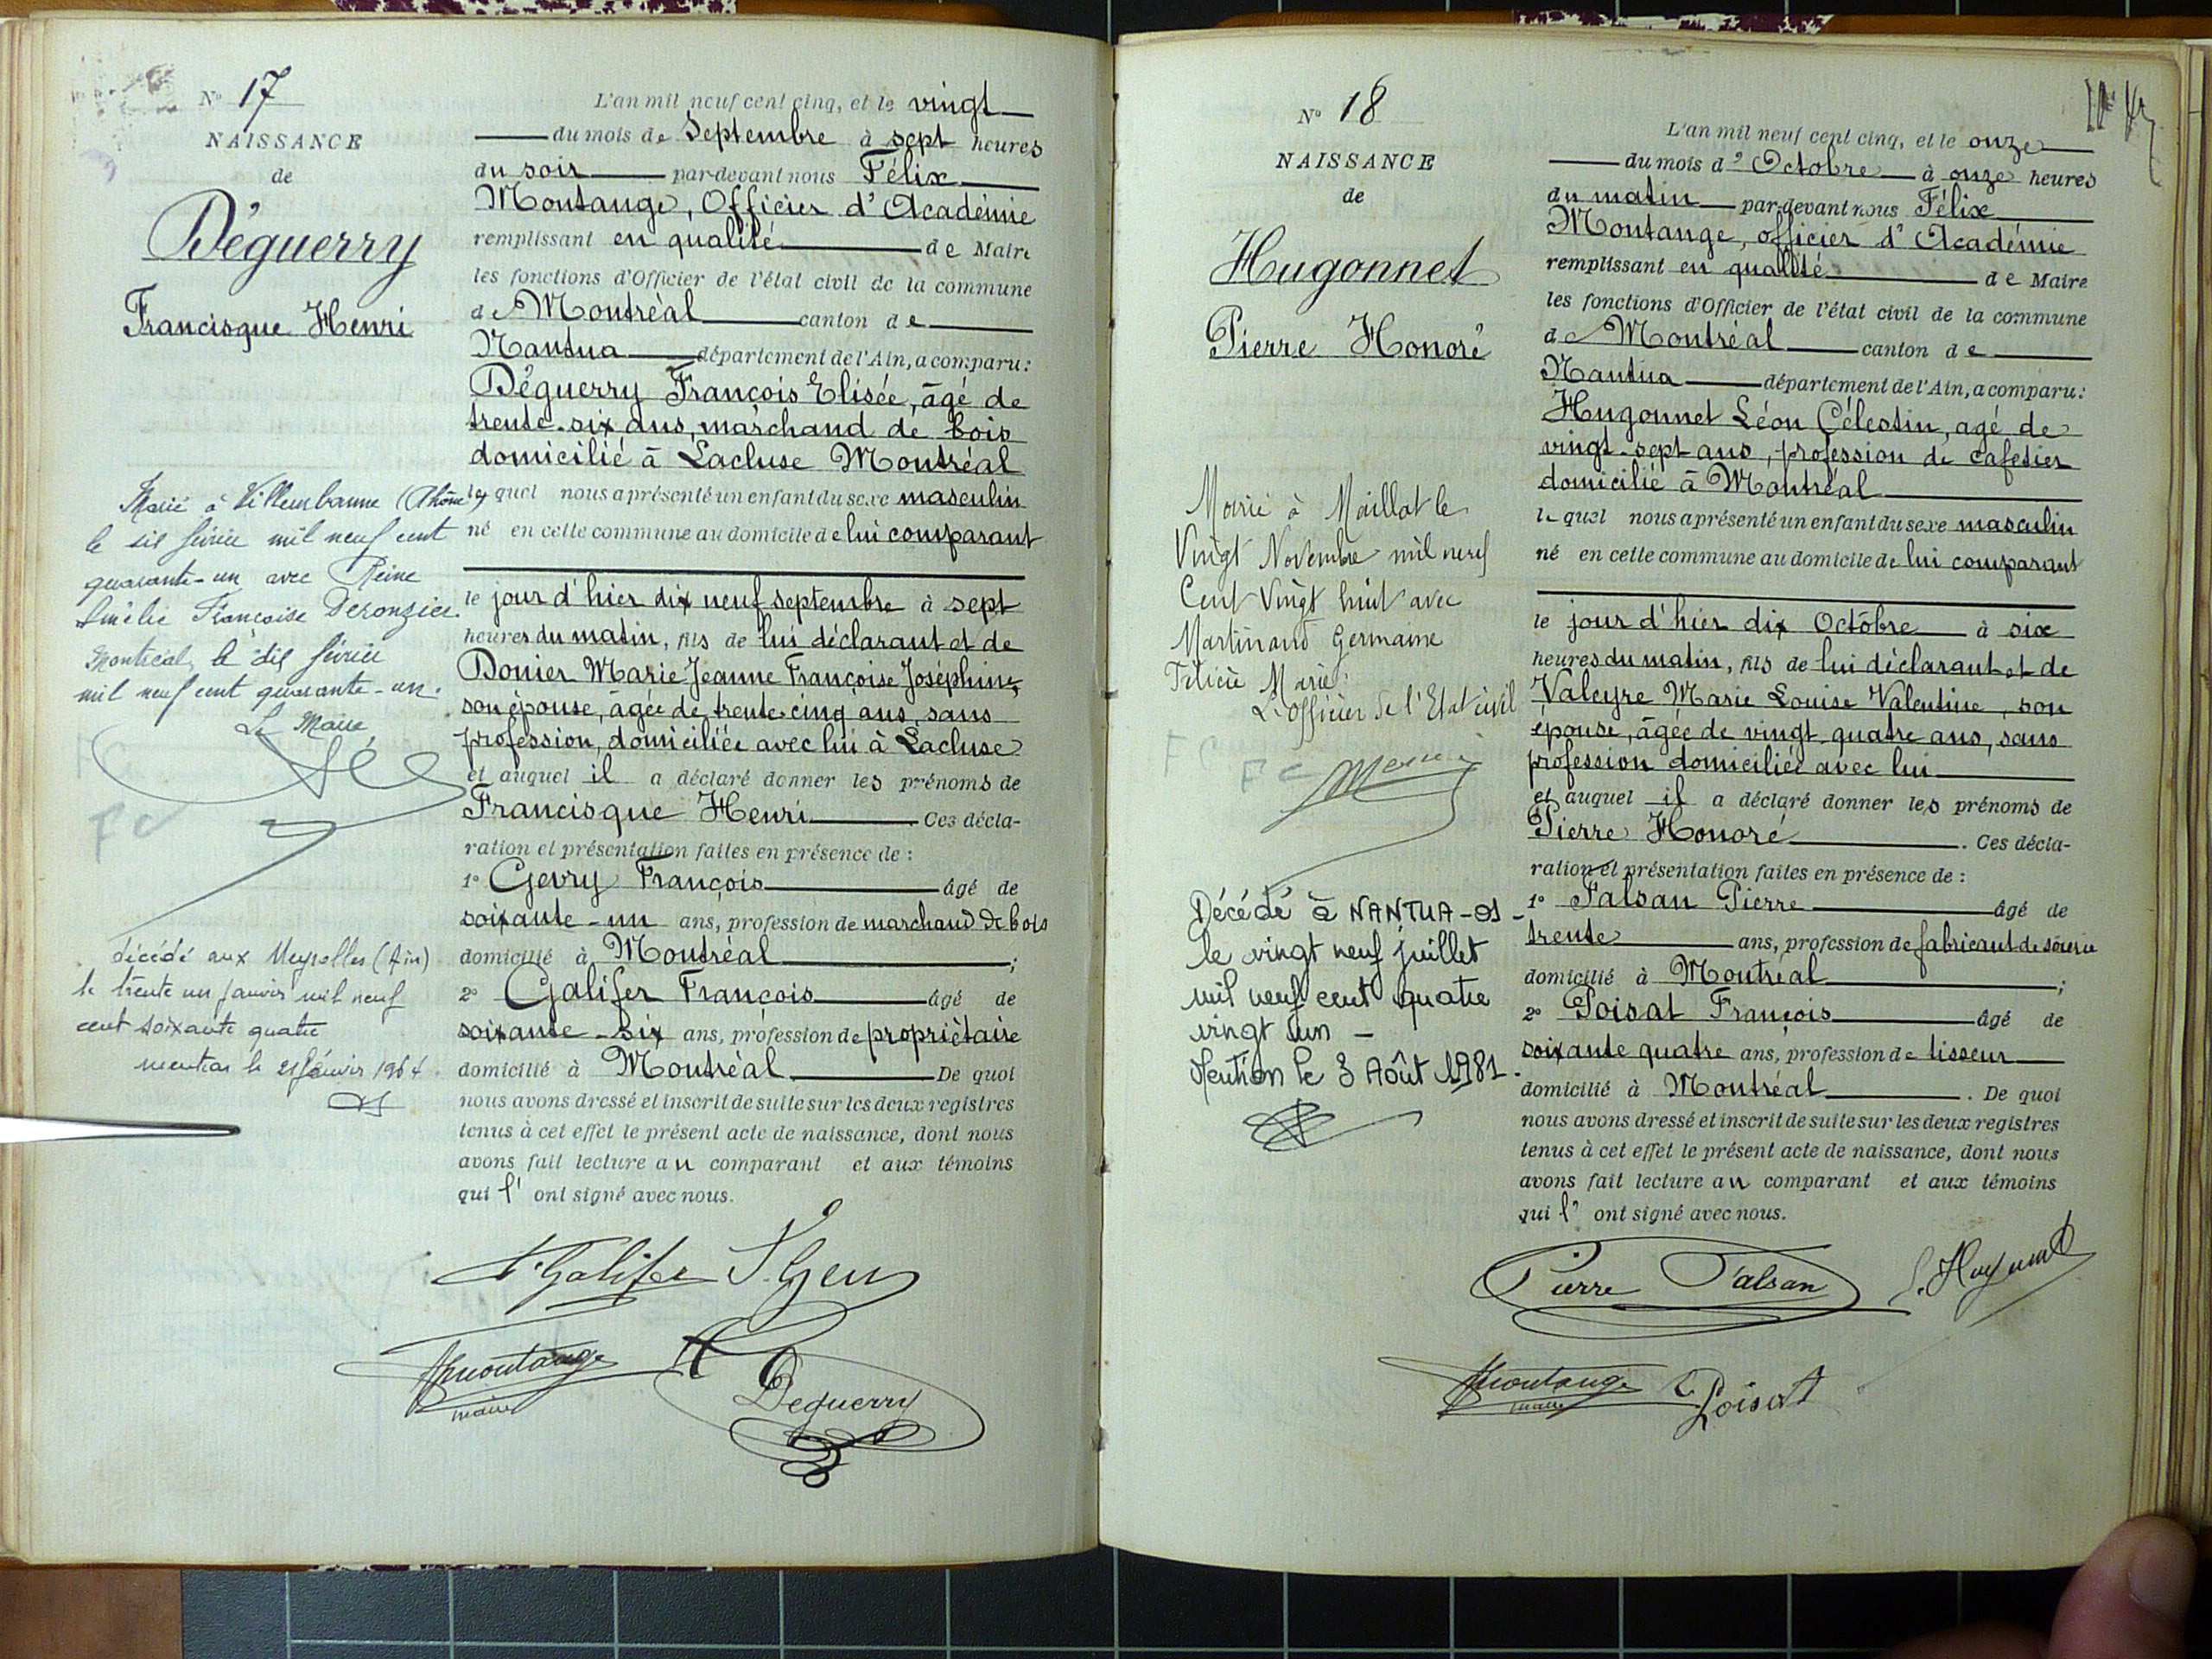 N° 17
NAISSANCE
de
Déguerry
Francisque Henri
Marié à Villeurbanne (Rhône)
le six février mil neuf cent
quarante-un avec Reine
Amélie Françoise Deronzier.
Montréal, le dix février
mil neuf cent quarante-un.
Le Maire,
FC
décédé aux Neyrolles (Ain)
le trente un janvier mil neuf
cent soixante quatre
mention le 21 février 1964.
L'an mil neuf cent cinq, et le vingt
du mois de Septembre à sept heures
du soir par-devant nous Félix
Montange, Officier d'Académie
remplissant en qualité de Maire
les fonctions d'Officier de l'état civil de la commune
de Montréal canton de
Nantua département de l'Ain, a comparu:
Déguerry François Elisée, âgé de
trente-six ans, marchand de bois
domicilié à Lacluse Montréal
lequel nous a présenté un enfant du sexe masculin
né en cette commune au domicile de lui comparant
le jour d'hier dix neuf septembre à sept
heures du matin, fils de lui déclarant et de
Donier Marie Jeanne Françoise Joséphine,
son épouse, âgée de trente cinq ans, sans
profession, domiciliée avec lui à Lacluse
et auquel il a déclaré donner les prénoms de
Francisque Henri. Ces décla-
ration et présentation faites en présence de :
1° Gevry François âgé de
soixante-un ans, profession de marchand de bois
domicilié à Montréal ;
2° Galifer François âgé de
soixante-six ans, profession de propriétaire
domicilié à Montréal. De quoi
nous avons dressé et inscrit de suite sur les deux registres
tenus à cet effet le présent acte de naissance, dont nous
avons fait lecture au comparant et aux témoins
qui l' ont signé avec nous.
F. Galifer
Montange
maire
Deguerry
N° 18
NAISSANCE
de
Hugonnet
Pierre Honoré
Marié à Maillat le
Vingt Novembre mil neuf
Cent Vingt huit avec
Martinand Germaine
Félicie Marie.
L'officier de l'Etat civil
FC FC
Décédé à NANTUA-01-
le vingt neuf juillet
mil neuf cent quatre
vingt un -
Mention le 3 Août 1981.
L'an mil neuf cent cinq, et le onze
du mois d'Octobre à onze heures
du matin par-devant nous Félix
Montange, officier d'Académie
remplissant en qualité de Maire
les fonctions d'Officier de l'état civil de la commune
de Montréal canton de
Nantua département de l'Ain, a comparu:
Hugonnet Léon Célestin, agé de
vingt-sept ans, profession de cafetier
domicilié à Montréal
lequel nous a présenté un enfant du sexe masculin
né en cette commune au domicile de lui comparant
le jour d'hier dix Octobre à six
heures du matin, fils de lui déclarant et de
Valeyre Marie Louise Valentine, son
épouse, âgée de vingt-quatre ans, sans
profession domiciliée avec lui
et auquel il a déclaré donner les prénoms de
Pierre Honoré. Ces décla-
ration et présentation faites en présence de :
1° Falsan Pierre âgé de
trente ans, profession de fabricant de soierie
domicilié à Montréal ;
2° Poisat François âgé de
soixante quatre ans, profession de tisseur
domicilié à Montréal. De quoi
nous avons dressé et inscrit de suite sur les deux registres
tenus à cet effet le présent acte de naissance, dont nous
avons fait lecture au comparant et aux témoins
qui l' ont signé avec nous.
Pierre Falsan
L. Hugonnet
Montange
maire
Poisat